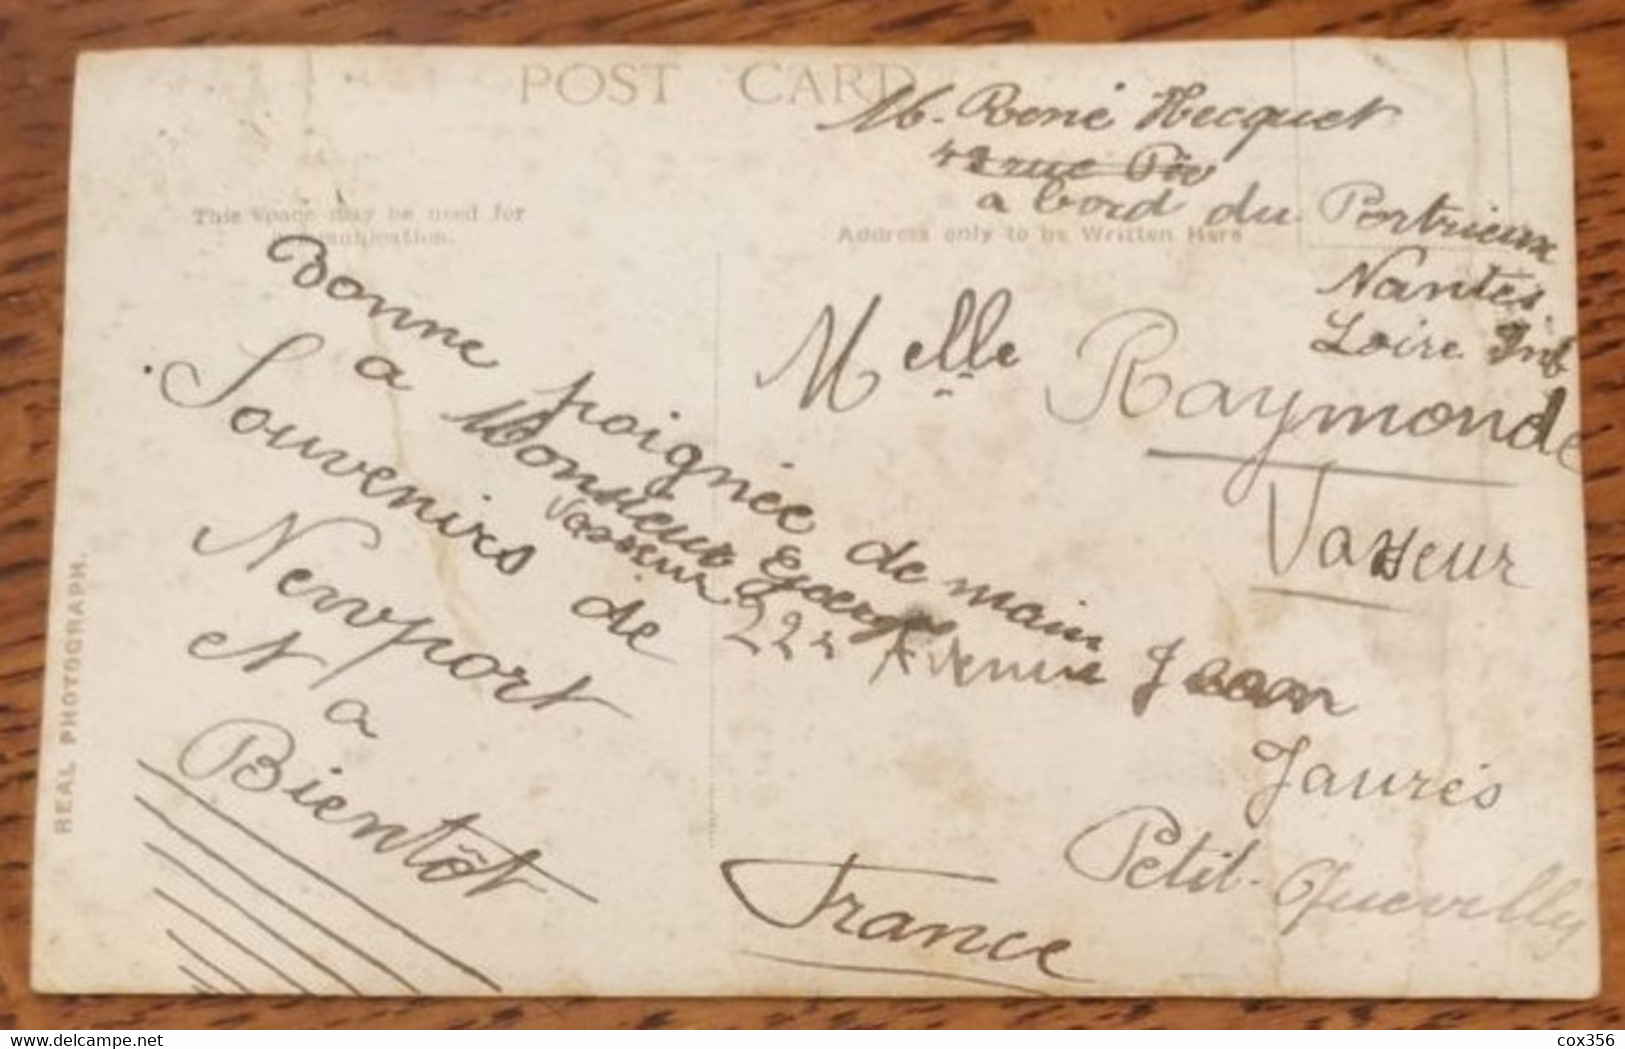 POST CARD
M. René Hecquet
à bord du Portrieux
Nantes.
Loire Inf
This space may be used for
Communication.
Address only to be Written Here
Bonne poignée de main
a Monsieur
Vasseur
Souvenirs de
Newport
et a
Bientôt
Melle Raymonde
Vasseur
222 Avenue Jean
Jaurés
Petit-Quevilly
France
REAL PHOTOGRAPH.
delcampe.net
cox356